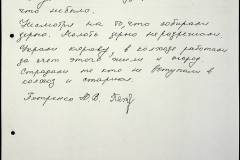 что небыло.
Несмотря на то, что собирали
зерно. Молоть зерно неразрешали.
Украли корову, в колхозе работали
за счет этого жили и огород
Страдали те кто не вступали в
колхоз и старики.
Петренко М. В.